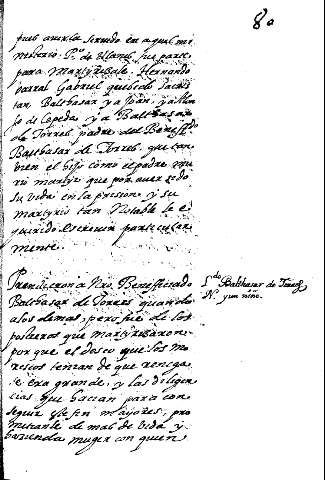 80
pues avia la seruido en aquel mi-
nisterio. Po. de Vlanes fue parte
para Martyrizarle. Hernando
parral Gabriel quebedo Sacris
tan Balthasar y a Joan, y a Alon
so de Cepeda, y a Balthasar
de Torres padre del Beneffdo
Balthasar de Torres que tan
bien el hijo como el padre mu
rio martyr que por auer sido
su vida en la presion y su
martyrio tan Notable le e
querido escreuir particular
mente.
Prendieron a Nro. Beneffeciado
Balthasar de Torres quando
a los demas, pero fue de los
postreros que martyrizaron
por que el deseo que los mo
rescos tenian de que renega
se era grande, y las diligen
cias que hacian para con
seguir este fin mayores, pro
metiante de mas de vida y
hacienda muger con quien
Ldo Balthasar de Torres
N. y un niño.